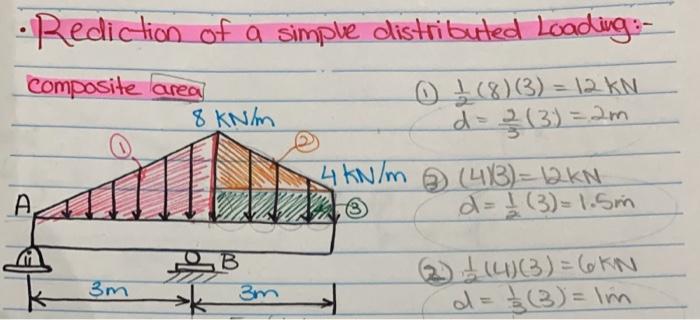 • Rediction of a simple distributed Loading:-
composite area
8 KN/m
①
②
4 KN/m
③
A
B
3m
3m
① 1/2 (8)(3) = 12 KN
d = 2/3 (3) = 2m
③ (4)(3) = 12 KN
d = 1/2 (3) = 1.5m
② 1/2 (4)(3) = 6 KN
d = 1/3 (3) = 1m